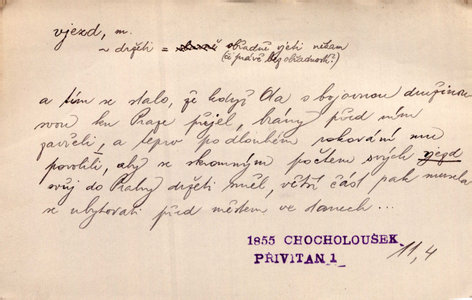 vjezd, m.
~ držeti = obřadně vjeti někam
(či právě bez obřadnosti?)
a tím se stalo, že když Ota s bojovnou družinou
svou ku Praze přijel, brány před ním
zavřeli, a teprv po dlouhém rokování mu
povolili, aby se skromným počtem svých vjezd
svůj do Prahy držeti směl, větší část pak musela
se ubytovati před městem ve stanech...
1855 CHOCHOLOUŠEK
PŘIVITAN 1 11,4